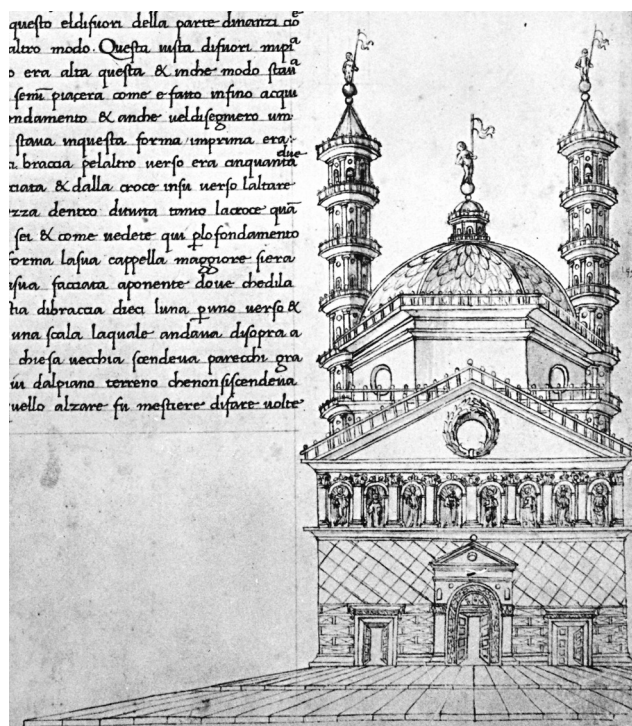 questo eldifuori della parte dinanzi cioe
altro modo. Questa uista difuori mipia
o era alta questa & inche modo staua
semi piacera come e fatto infino acqui
ndamento & anche ueldisegnero
staua inquesta forma imprima era:
a braccia pelaltro uerso era cinquanta due
ciata & dalla croce insu uerso laltare
zza dentro dituta tanto lacroce quā
sei & come uedete qui plo fondamento
forma lasua cappella maggiore siera
sua facciata aponente doue chedila
dibraccia dieci luna puno uerso &
una scala laquale andaua disopra a
chiesa uecchia scendeua parecchi gra
dalpiano terreno chenonsiscendeua
uello alzare fu mestiere difare uolte